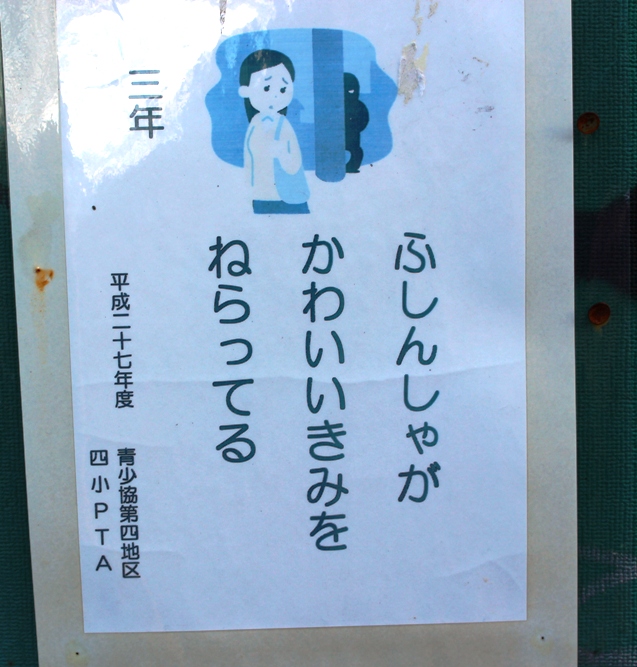 ふしんしゃが
かわいいきみを
ねらってる
三年
平成二十七年度
青少協第四地区
四小PTA